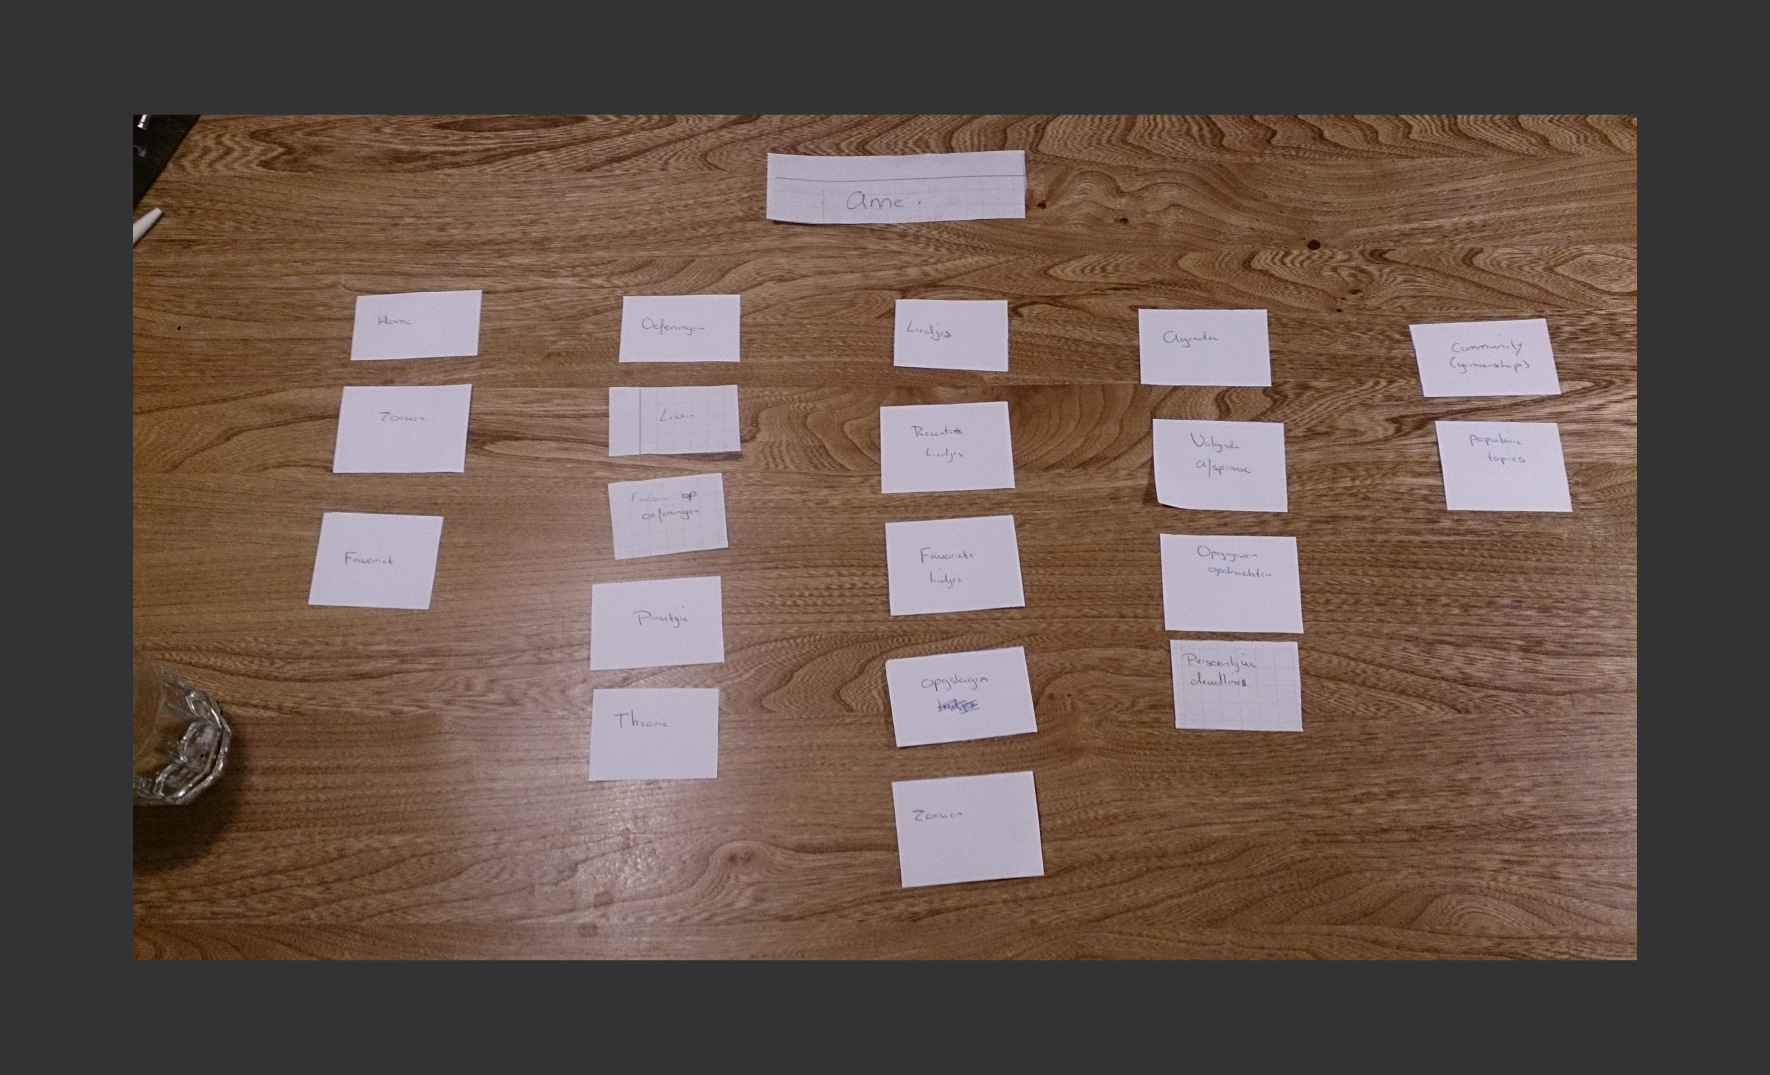 Arne
Home
Zoeken
Favoriet
Oefeningen
Lessen
op
oefeningen
Praktijk
Theorie
Liedjes
Recente
liedjes
Favoriete
liedjes
Opgeslagen
Zoeken
Agenda
Volgende
afspraak
Opgegeven
opdrachten
Persoonlijke
deadlines
Community
(gemeenschap)
populaire
topics